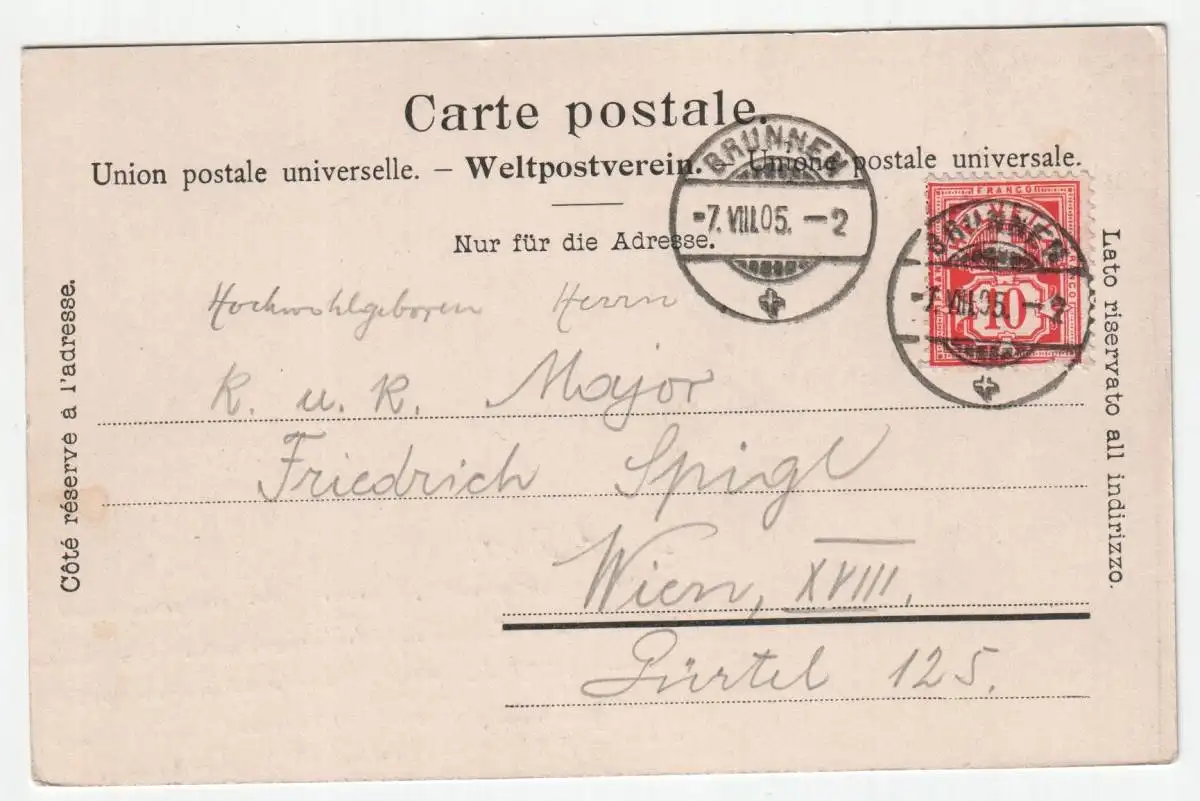 Carte postale.
Union postale universelle. – Weltpostverein. – Unione postale universale.
Nur für die Adresse.
Côté réserve à l'adresse.
Lato riservato all indirizzo.
BRUNNEN
-7.VIII.05. –2
FRANCO
FRANCO
10
BRUNNEN
-7.VIII.05. –2
Hochwohlgeboren Herrn
K. u. K. Major
Friedrich Spigl
Wien, XVIII.
Gürtel 125.